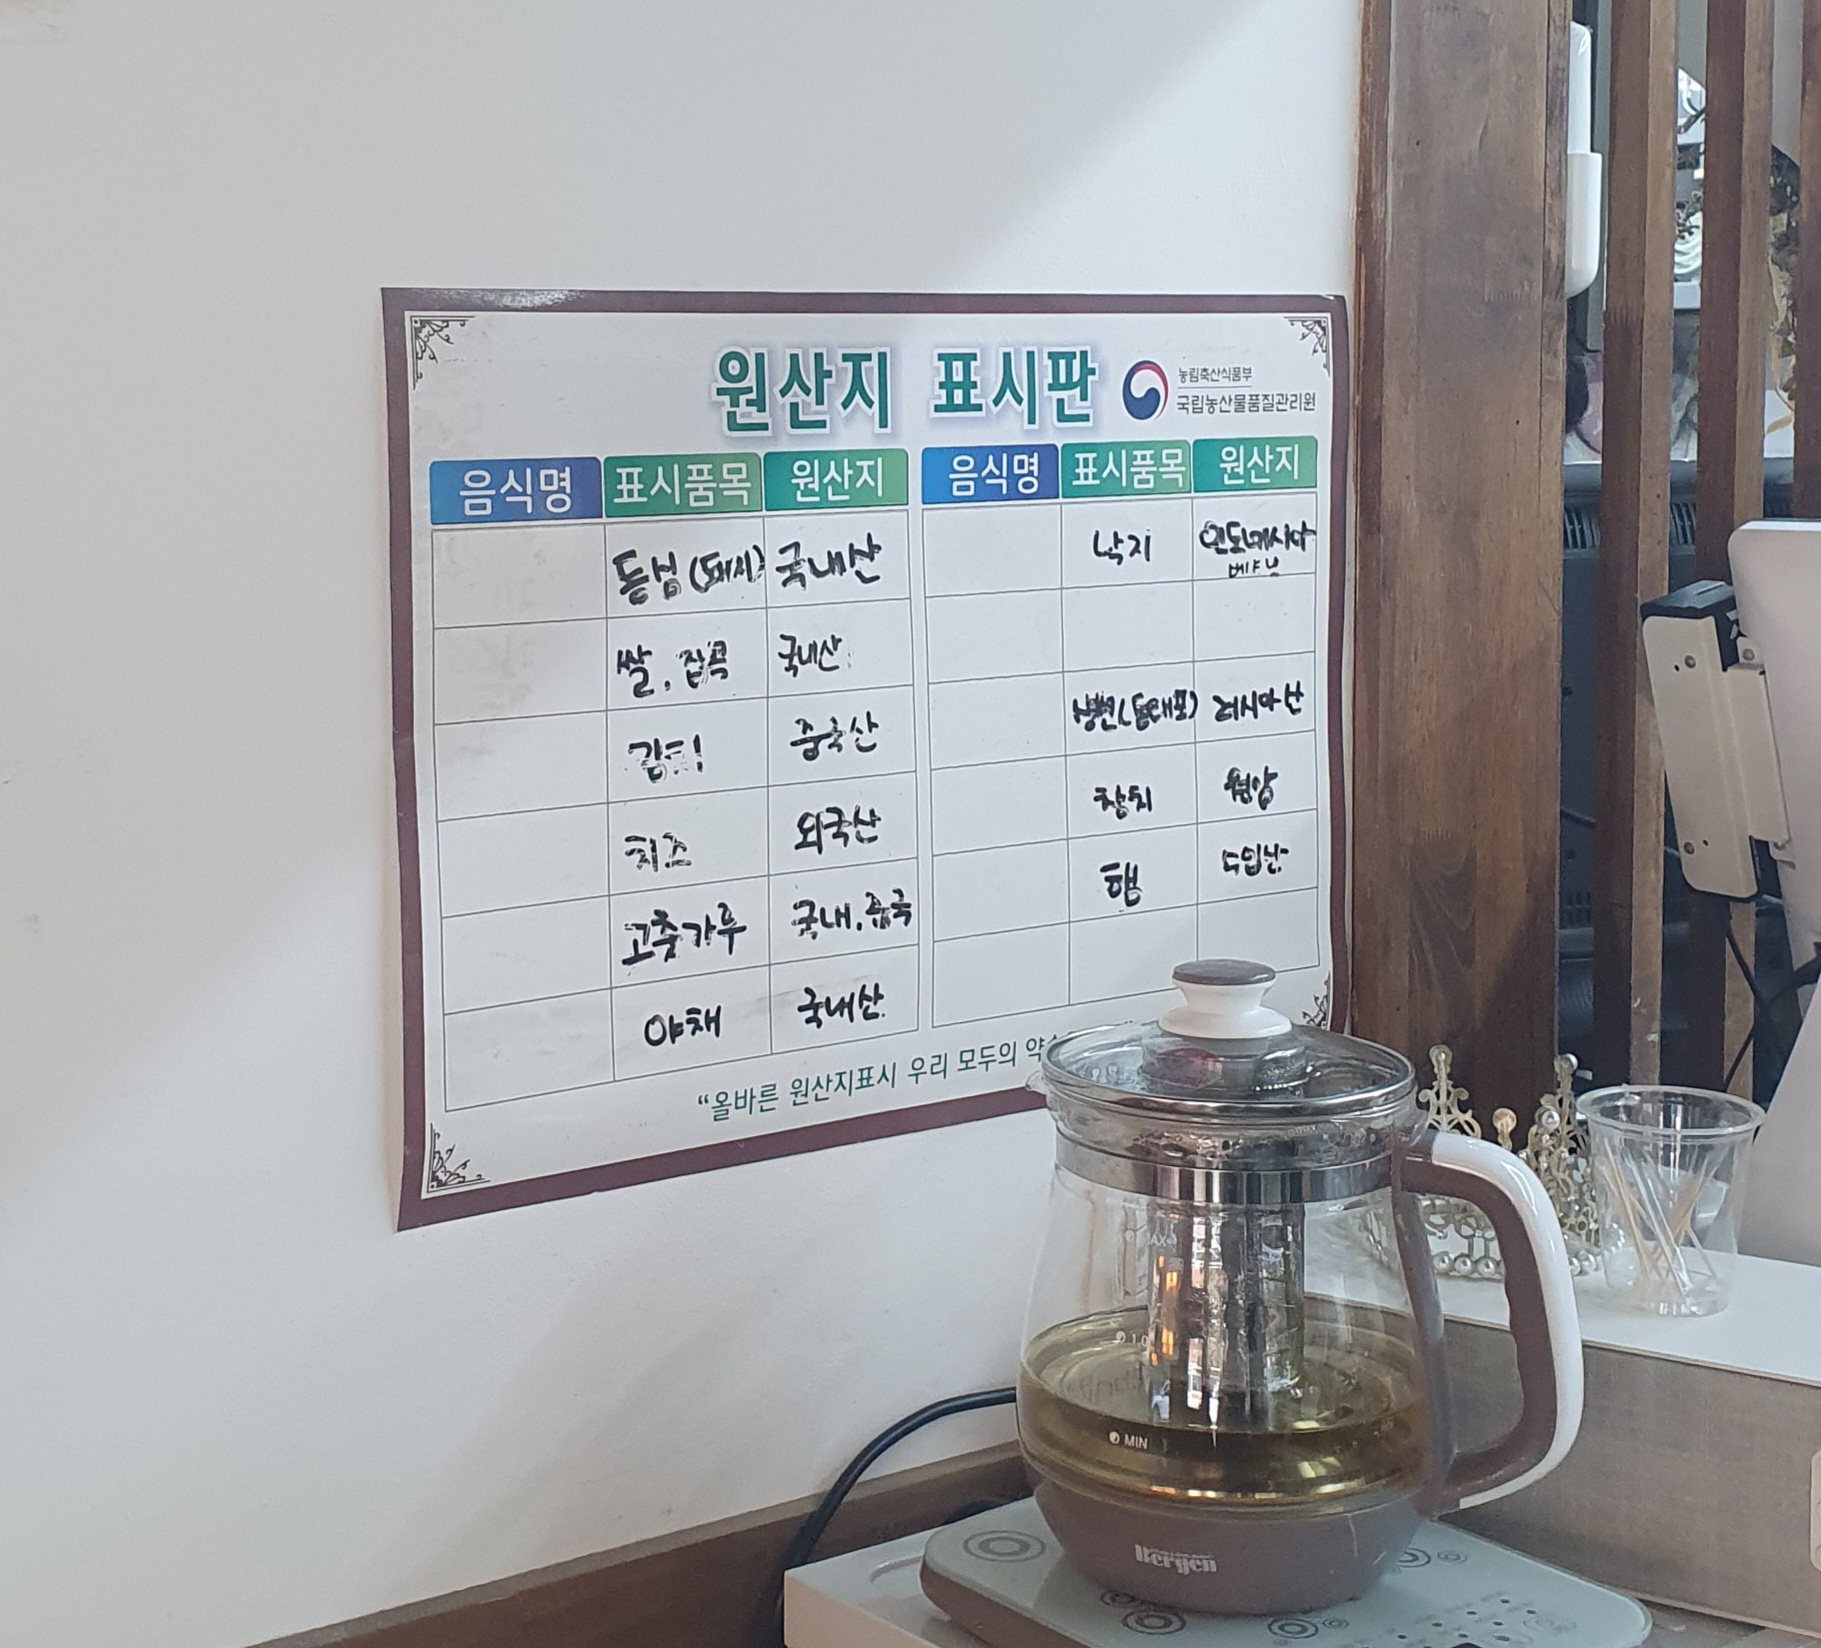 원산지 표시판
농림축산식품부
국립농산물품질관리원
음식명 표시품목 원산지 음식명 표시품목 원산지
등심(돼지) 국내산 낙지 인도네시아
베트남
쌀, 잡곡 국내산
김치 중국산 냉면(동태포) 러시아산
치즈 외국산 참치 원양
고춧가루 국내, 중국 햄 수입산
야채 국내산
"올바른 원산지표시 우리 모두의
MIN
Bergen